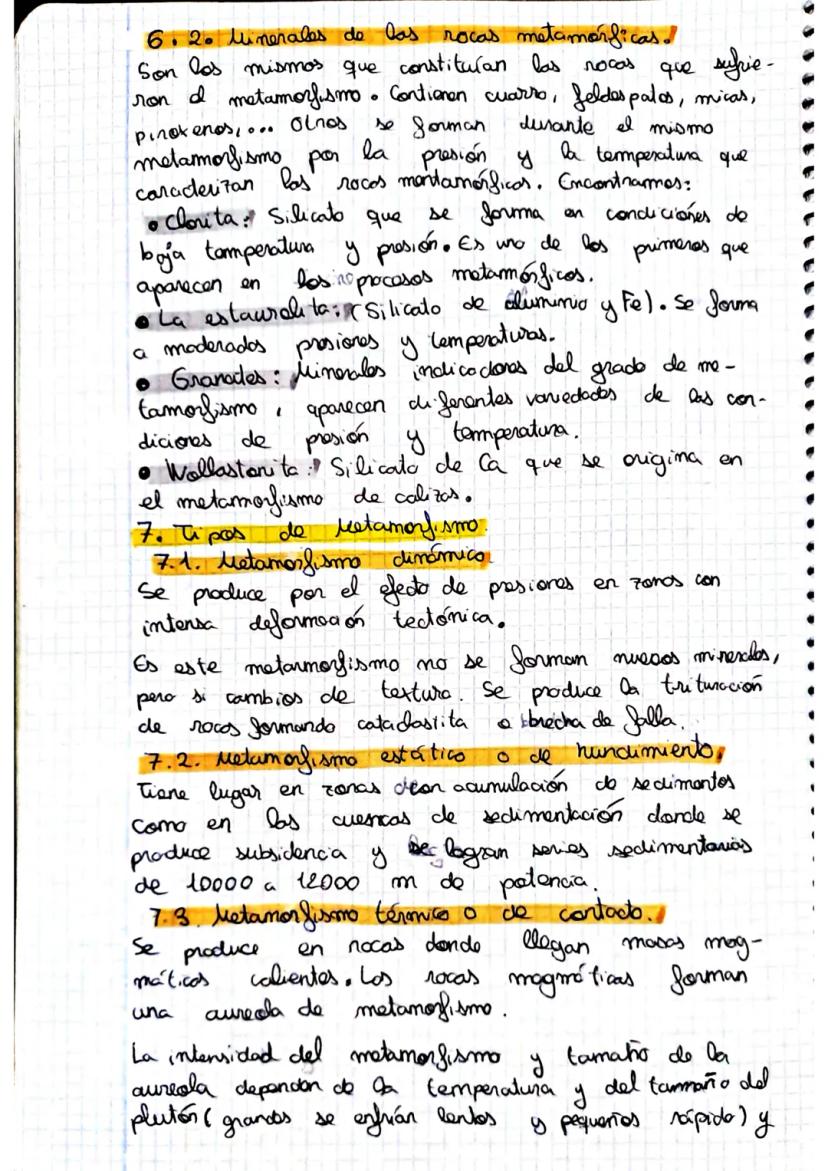 6.2. Minerales de las rocas metamórficas.
Son los mismos que constituían las rocas que sufrie-
ron el metamorfismo. Contienen cuarzo, feldespatos, micas,
piroxenos,... Otros se forman durante el mismo
metamorfismo por la presión y la temperatura que
caracterizan las rocas mentamórficas. Encontramos:
• Clorita: Silicato que se forma en condiciones de
baja temperatura y presión. Es uno de los primeros que
aparecen en los procesos metamórficos.
• La estaurolita: (Silicato de aluminio y Fe). Se forma
a moderados presiones y temperaturas.
• Granates: Minerales indicadores del grado de me-
tamorfismo, aparecen diferentes variedades de las con-
diciones de presión y temperatura.
• Wollastonita: Silicato de Ca que se origina en
el metamorfismo de calizas.
7. Tipos de Metamorfismo.
7.1. Metamorfismo dinámico
Se produce por el efecto de presiones en zonas con
intensa deformación tectónica.
Es este metamorfismo no se forman nuevos minerales,
pero si cambios de textura. Se produce la trituración
de rocas formando cataclastita o brecha de falla.
7.2. Metamorfismo estático o de hundimiento.
Tiene lugar en zonas con acumulación de sedimentos
como en las cuencas de sedimentación donde se
produce subsidencia y se logran series sedimentarias
de 10000 a 12000 m de potencia.
7.3. Metamorfismo térmico o de contacto.
Se produce en rocas donde llegan masas mag-
máticas calientes. Las rocas magmáticas forman
una aureola de metamorfismo.
La intensidad del metamorfismo y tamaño de la
aureola dependen de la temperatura y del tammaño del
plutón (grandes se enfrían lentos y pequeños rápido) y